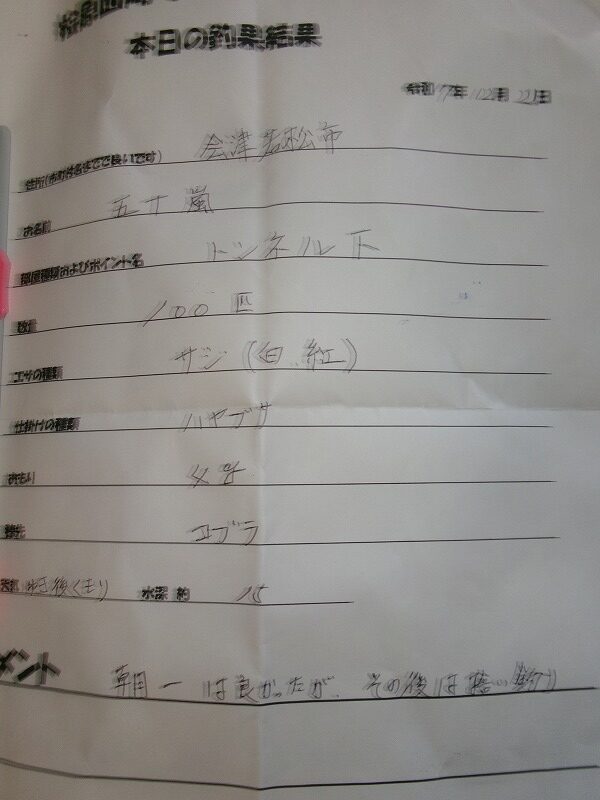 本日の釣果結果
令和 7年 12月 22日
住所(市町村名までで良いです) 会津若松市
お名前 五十嵐
部屋種類およびポイント名 トンネル下
数量 100匹
エサの種類 サシ(白、紅)
仕掛けの種類 ハヤブサ
おもり
穂先 コブラ
天気 晴後くもり 水深 約 15
メント 朝一は良かったが、その後は